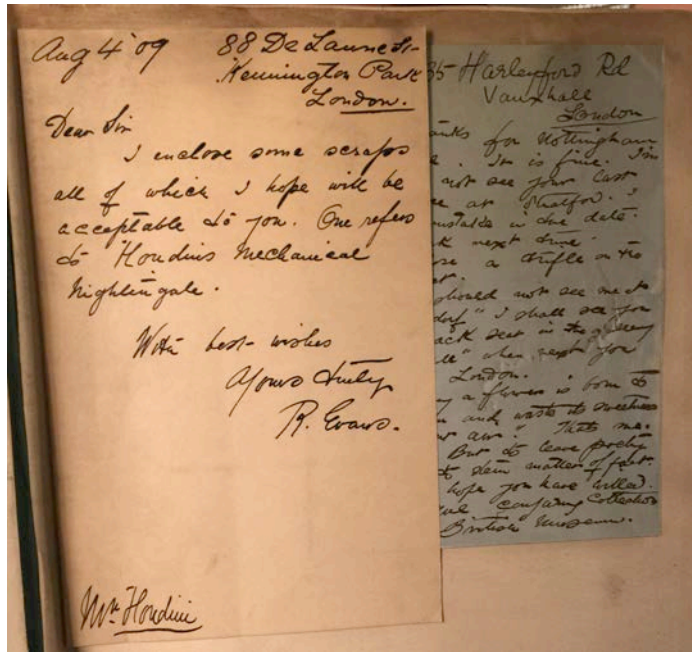 Aug 4 '09
88 De Laune St-
Kennington Park
London.
Dear Sir
I enclose some scraps
all of which I hope will be
acceptable to you. One refers
to "Houdin's Mechanical
Nightingale.
With best- wishes
Yours truly
R. Evans.
Mr. Houdini
35 Harleyford Rd
Vauxhall
London
anks for Nottingham
. Im is fine. I'm
not see your last
at . I
in due date.
next time
a trifle on the
should not see me at
" I shall see you
ack seat in the gallery
" when next you
London.
a flowers is born to
and waste its sweetness
air." Thats me.
But to leave poetry
to stern matter of fact.
hope you have willed
conjuring Collection
British Museum.